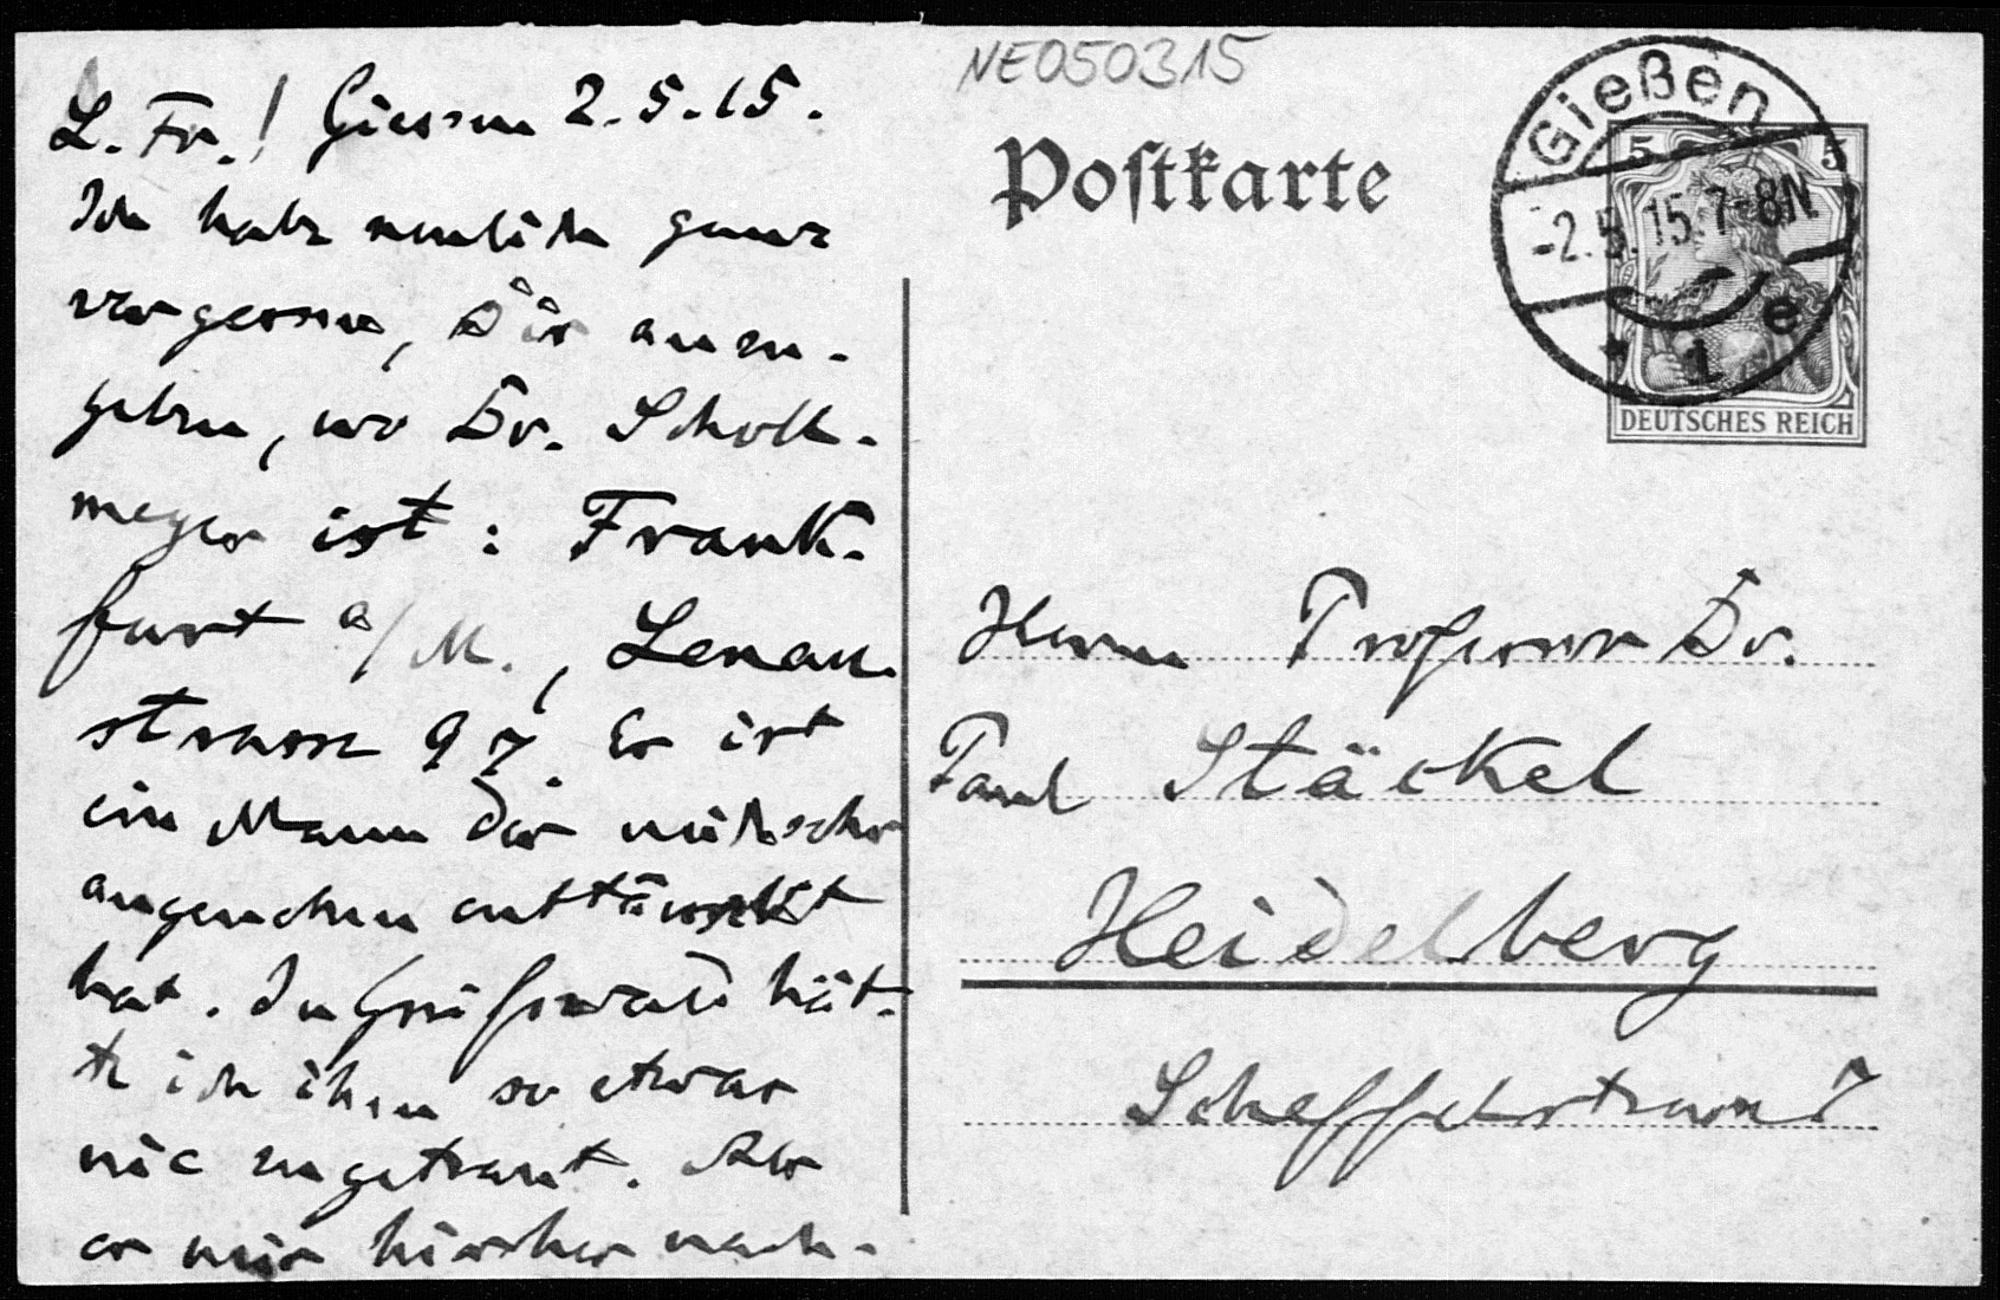 L. Fr.! Giessen 2.5.15.
Ich habe neulich ganz
vergessen, Dir anzu-
geben, wo Dr. Scholl-
meyer ist: Frank-
furt a/M., Lenau-
strasse 97. Er ist
ein Mann der mich sehr
angenehm enttäuscht
hat. In Greifswald hät-
te ich ihm so etwas
nie zugetraut. Als
er mir hierher nach-
NE050315
Postkarte
Gießen
-2.5.15.7-8N
* 1 e
5 5
DEUTSCHES REICH
Herrn Professor Dr.
Paul Stäckel
Heidelberg
Scheffelstrasse 7